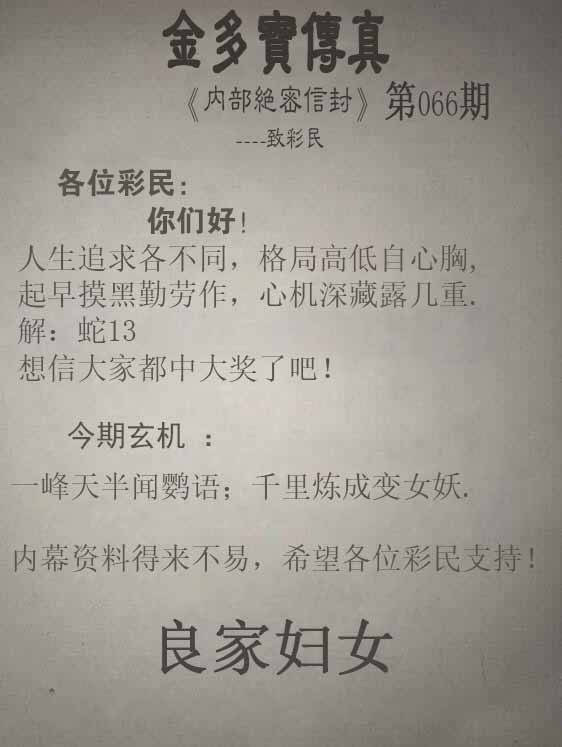 金多寳傳真
《内部絶密信封》第066期
----致彩民
各位彩民:
你们好!
人生追求各不同，格局高低自心胸,
起早摸黑勤劳作，心机深藏露几重.
解：蛇13
想信大家都中大奖了吧！
今期玄机 ：
一峰天半闻鹦语；千里炼成变女妖.
内幕资料得来不易，希望各位彩民支持！
良家妇女